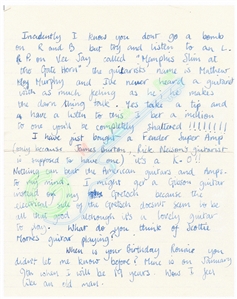 Incidently I know you dont go a bomb
on R and B but try and listen to an L.
P. on Vee Jay called "Memphis Slim at
the Gate Horn" the guitarists name is Mathew
Murphy and I've never heard a guitarist
with as much feeling as he he makes
the darn thing talk. Yes take a tip and
have a listen to this I bet a million
to one you'll be completely shattered!!!!!!!
I have just bought a Fender Super Amp
(only because James Burton, Rick Nelsons guitarist
is supposed to have one) it's a K-O!!
Nothing can beat the American guitars and Amps.
to my mind. I might get a Epiphone guitar
instead of my Gretsch because the
electrical side of the Gretsch doesn't seem to be
all that good although it's a lovely guitar
to play. What do you think of Scottie
Moores guitar playing?
When is your birthday Ronnie you
didn't let me know before? Mine is on January
9th when I will be 19 years. Wow I feel
like an old man.